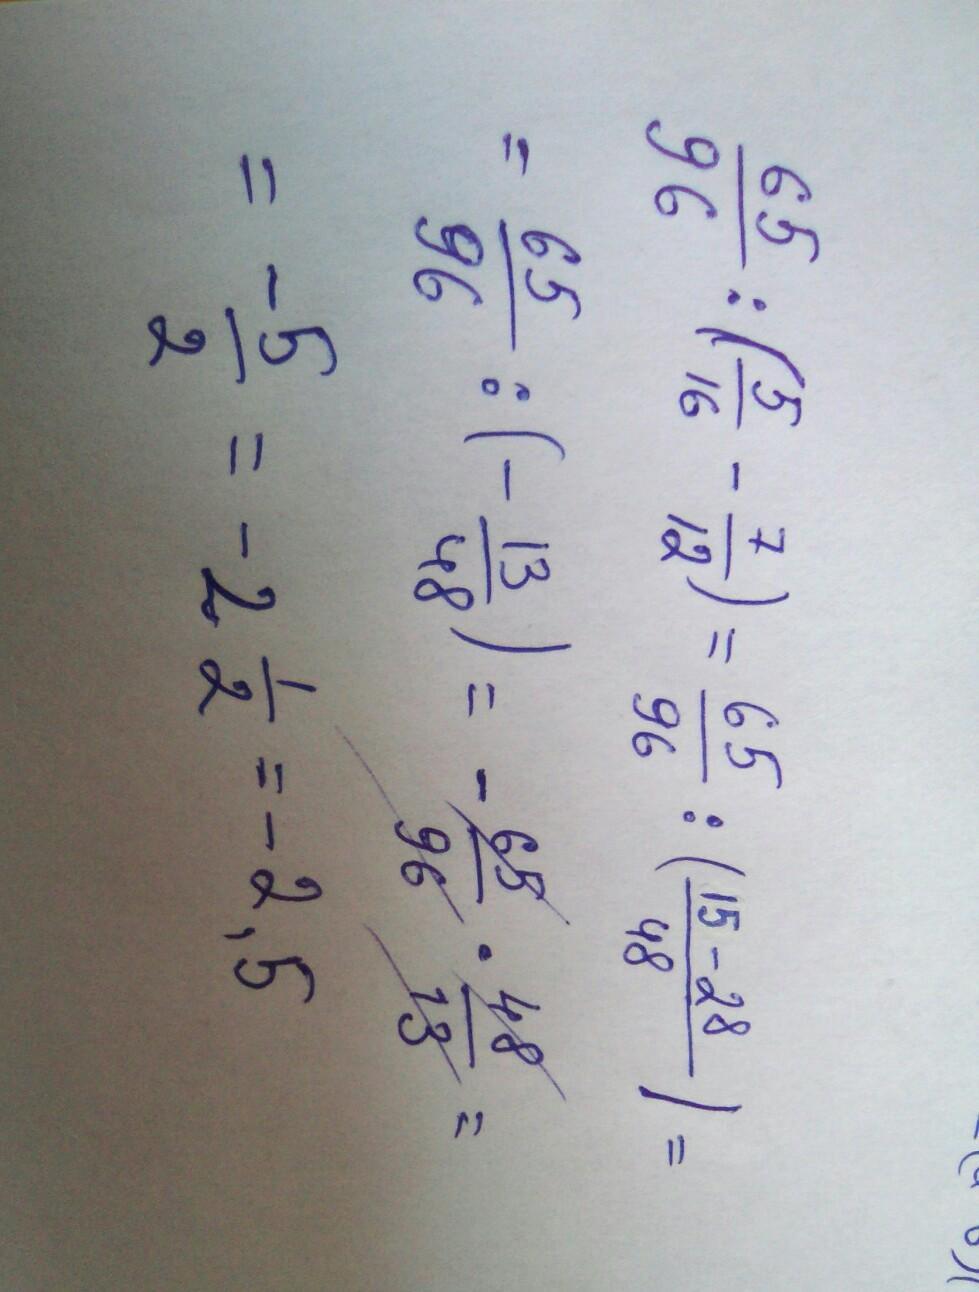 65/96 : (5/16 - 7/12) = 65/96 : (15-28/48) =
= 65/96 : (-13/48) = - 65/96 · 48/13 =
= -5/2 = -2 1/2 = -2,5